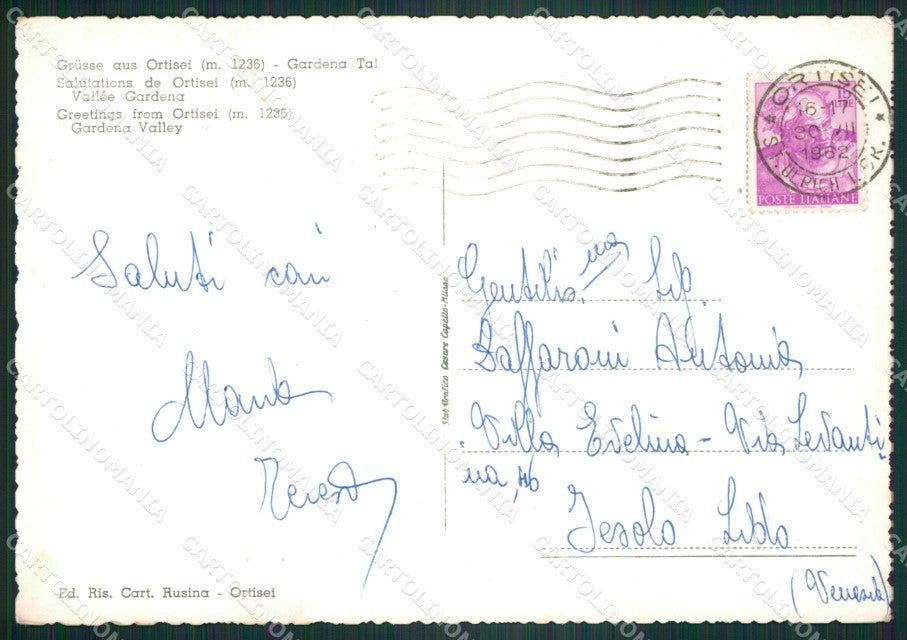 Grüsse aus Ortisei (m. 1236) - Gardena Tal
Salutations de Ortisei (m. 1236)
Vallée Gardena
Greetings from Ortisei (m. 1236)
Gardena Valley
ORTISEI
16-1
30 VII
1962
ST. ULRICH I. GR.
15
LIRE
POSTE ITALIANE
Saluti cari
Teresa
Ed. Ris. Cart. Rusina - Ortisei
Stab Grafico Cesare Capello-Milano
Gentilis.ma Sig.
Zaffaroni Antonia
Villa Evelina - Via Levanti
na, 46
Jesolo Lido
(Venezia)
CARTOLINOMANIA